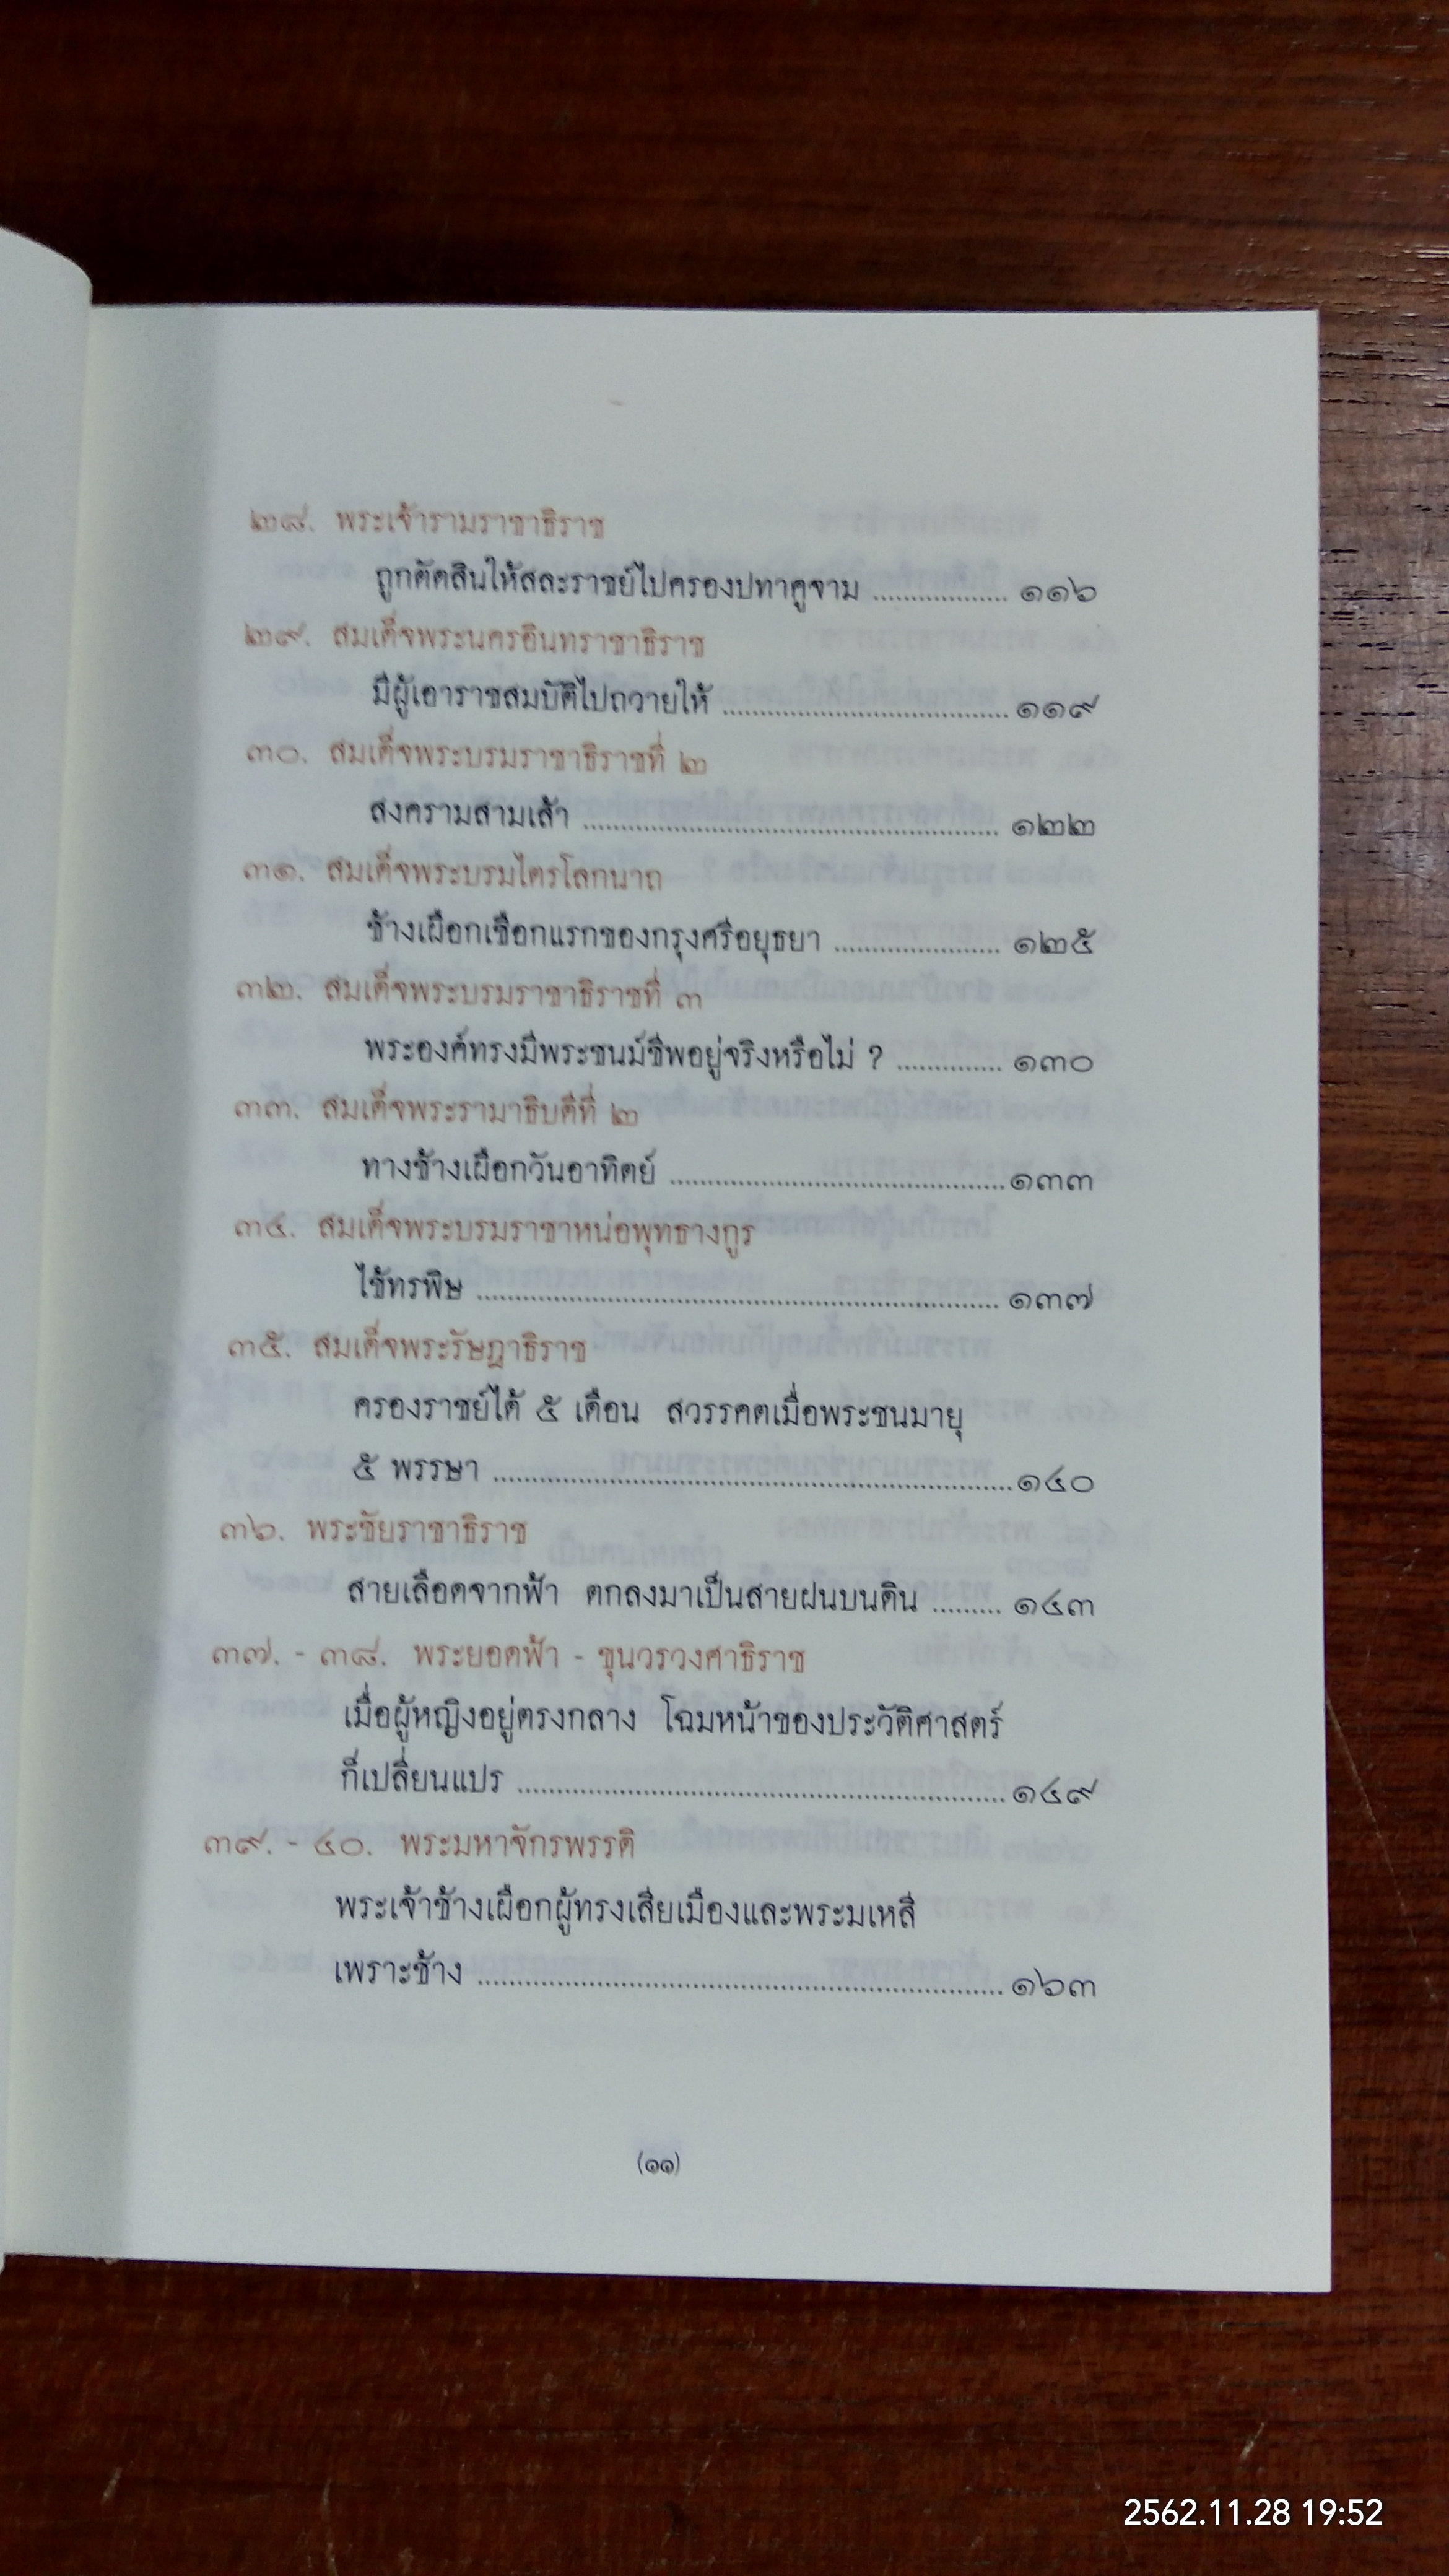 ๒๘. พระเจ้ารามราชาธิราช
ถูกตัดสินให้สละราชย์ไปครองปทาคูจาม .................. ๑๑๖
๒๙. สมเด็จพระนครอินทราชาธิราช
มีผู้เอาราชสมบัติไปถวายให้ ...................................... ๑๑๙
๓๐. สมเด็จพระบรมราชาธิราชที่ ๒
สงครามสามเส้า ........................................................ ๑๒๒
๓๑. สมเด็จพระบรมไตรโลกนาถ
ช้างเผือกเชือกแรกของกรุงศรีอยุธยา ...................... ๑๒๕
๓๒. สมเด็จพระบรมราชาธิราชที่ ๓
พระองค์ทรงมีพระชนม์ชีพอยู่จริงหรือไม่ ? .............. ๑๓๐
๓๓. สมเด็จพระรามาธิบดีที่ ๒
ทางช้างเผือกวันอาทิตย์ .............................................๑๓๓
๓๔. สมเด็จพระบรมราชาหน่อพุทธางกูร
ไข้ทรพิษ ...................................................................... ๑๓๗
๓๕. สมเด็จพระรัษฎาธิราช
ครองราชย์ได้ ๕ เดือน สวรรคตเมื่อพระชนมายุ
๕ พรรษา .....................................................................๑๔๐
๓๖. พระชัยราชาธิราช
สายเลือดจากฟ้า ตกลงมาเป็นสายฝนบนดิน ......... ๑๔๓
๓๗. - ๓๘. พระยอดฟ้า - ขุนวรวงศาธิราช
เมื่อผู้หญิงอยู่ตรงกลาง โฉมหน้าของประวัติศาสตร์
ก็เปลี่ยนแปร .................................................................๑๔๙
๓๙. - ๔๐. พระมหาจักรพรรดิ
พระเจ้าช้างเผือกผู้ทรงเสียเมืองและพระมเหสี
เพราะช้าง ...................................................................... ๑๖๓
(๑๑)
2562.11.28 19:52